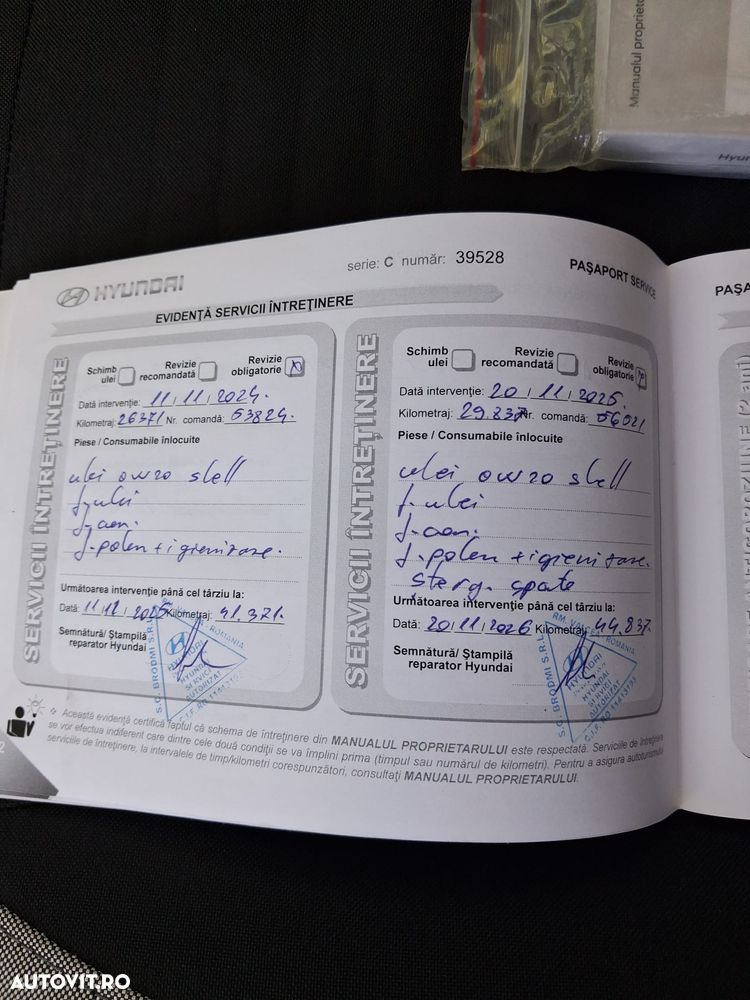 Manualul proprieta
Hyun
HYUNDAI
serie: C număr: 39528
PAȘAPORT SERVICE
PAȘA
EVIDENȚĂ SERVICII ÎNTREȚINERE
SERVICII ÎNTREȚINERE
Schimb ulei
Revizie recomandată
Revizie obligatorie X
Dată intervenție: 11/11/2024.
Kilometraj: 26371 Nr. comandă: 53824.
Piese / Consumabile înlocuite
ulei 0W20 shell
f.ulei
f.aer.
f.polen + igienizare.
Următoarea intervenție până cel târziu la:
Dată: 11/11/2025 Kilometraj: 41.371.
Semnătură/ Ștampilă
reparator Hyundai
S.C. BRODMI S.R.L. RM. VALCEA - ROMANIA
HYUNDAI
SERVICE
AUTORIZAT
SERVICII ÎNTREȚINERE
Schimb ulei
Revizie recomandată
Revizie obligatorie X
Dată intervenție: 20/11/2025.
Kilometraj: 29.837 Nr. comandă: 56021
Piese / Consumabile înlocuite
ulei 0W20 shell
f.ulei
f.aer.
f.polen + igienizare.
șterg. spate
Următoarea intervenție până cel târziu la:
Dată: 20/11/2026 Kilometraj: 44.837.
Semnătură/ Ștampilă
reparator Hyundai
S.C. BRODMI S.R.L. RM. VALCEA - ROMANIA
HYUNDAI
SERVICE
AUTORIZAT
C.I.F. RO 11413193
Această evidență certifică faptul că schema de întreținere din MANUALUL PROPRIETARULUI este respectată. Serviciile de întreținere
se vor efectua indiferent care dintre cele două condiții se va împlini prima (timpul sau numărul de kilometri). Pentru a asigura autoturismului
serviciile de întreținere, la intervalele de timp/kilometri corespunzători, consultați MANUALUL PROPRIETARULUI.
2
AUTOVIT.RO